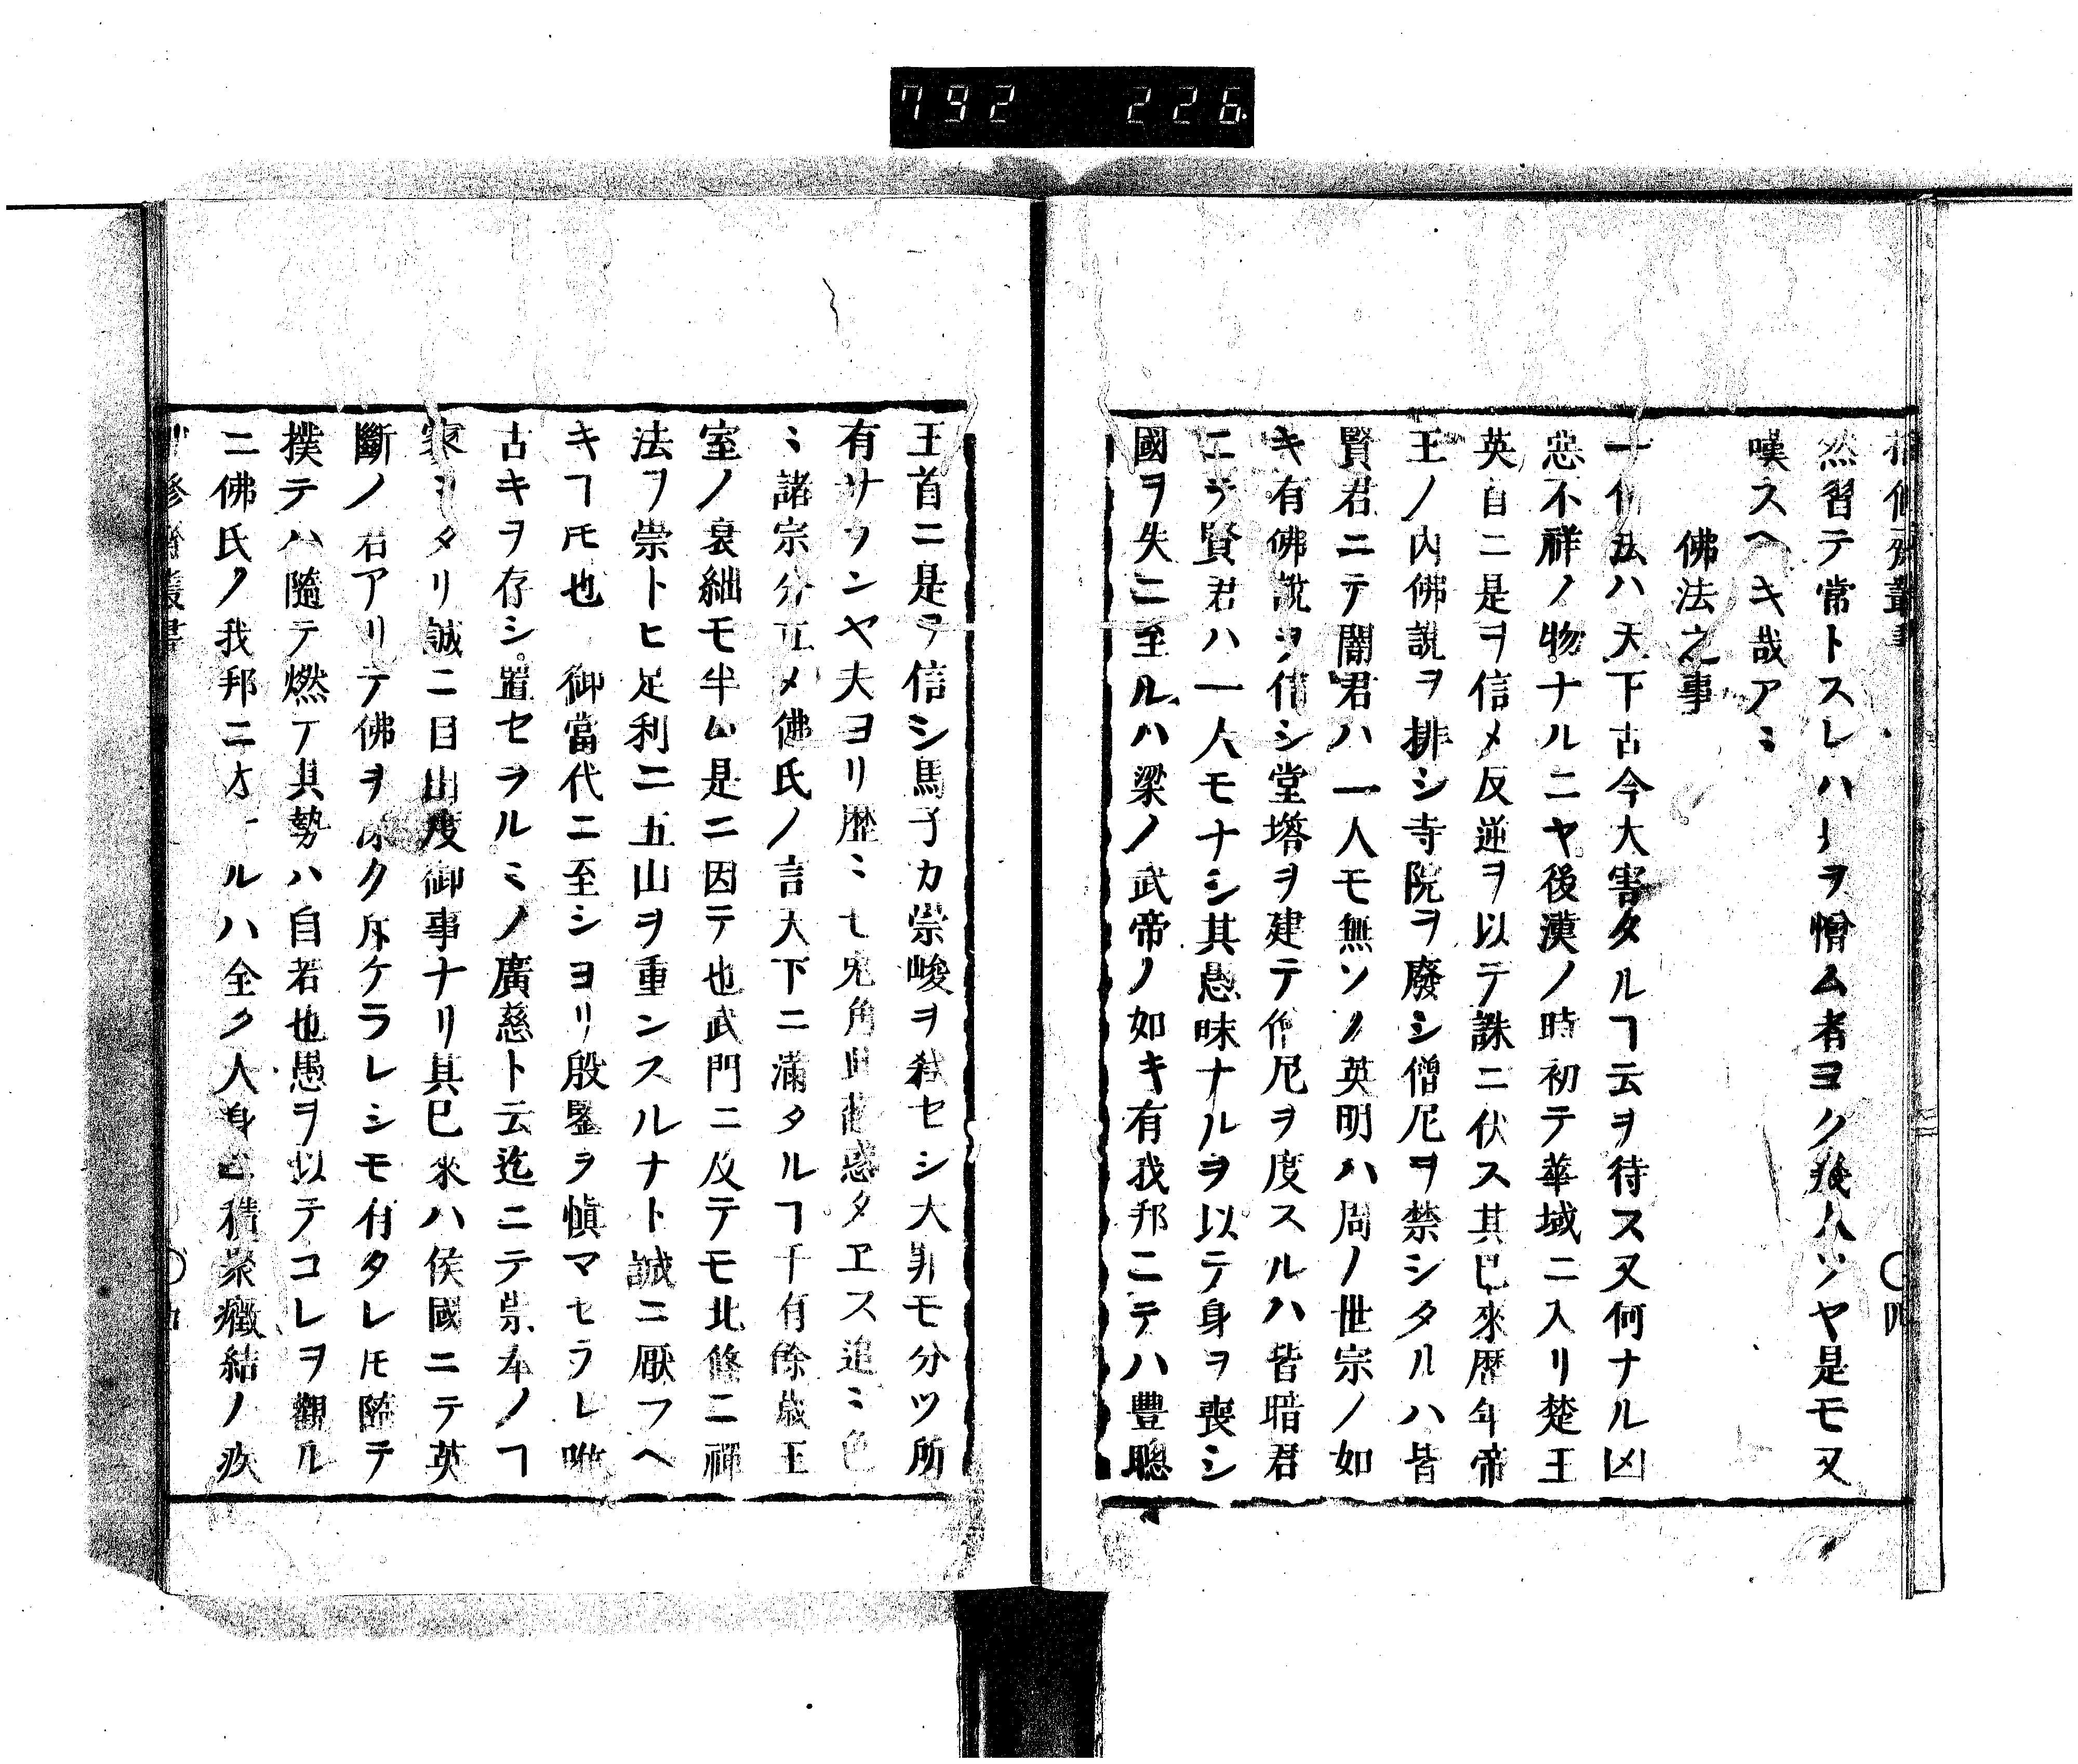 792 226
然習テ常トスレハ ヲ憎ム者ヨク幾人ソヤ是モ又
嘆スヘキ哉アミ
佛法之事
一佛法ハ天下古今大害タルヿ云ヲ待ス又何ナル凶
惡不祥ノ物ナルニヤ後漢ノ時初テ華域ニ入リ楚王
英自ニ是ヲ信メ反逆ヲ以テ誅ニ伏ス其已來歴年帝
王ノ内佛說ヲ排シ寺院ヲ廢シ僧尼ヲ禁シタルハ皆
賢君ニテ闇君ハ一人モ無ソノ英明ハ周ノ世宗ノ如
キ有佛說ヲ信シ堂塔ヲ建テ僧尼ヲ度スルハ皆暗君
ニテ賢君ハ一人モナシ其愚昧ナルヲ以テ身ヲ喪シ
國ヲ失ニ至ルハ梁ノ武帝ノ如キ有我邦ニテハ豊聰
王首ニ是ヲ信シ馬子カ崇峻ヲ弑セシ大罪モ分ツ所
有サランヤ夫ヨリ歷ミ 惑タヱス追ミ
ミ諸宗分 メ佛氏ノ言天下ニ滿タルヿ千有餘歲王
室ノ衰絀モ半ハ是ニ因テ也武門ニ及テモ北條ニ禪
法ヲ崇トヒ足利ニ五山ヲ重ンスルナト誠ニ厭フヘ
キヿ𪜈也 御當代ニ至シヨリ殷鑒ヲ愼マセラレ唯
古キヲ存シ置セヲルミノ廣慈ト云迄ニテ崇奉ノヿ
タリ誠ニ目出度御事ナリ其已來ハ侯國ニテ英
斷ノ君アリテ佛ヲ 斥ケラレシモ有タレ𪜈隨テ
撲テハ隨テ燃テ其勢ハ自若也愚ヲ以テコレヲ觀ル
ニ佛氏ノ我邦ニオ ルハ全ク人身ニ積聚癥結ノ疾